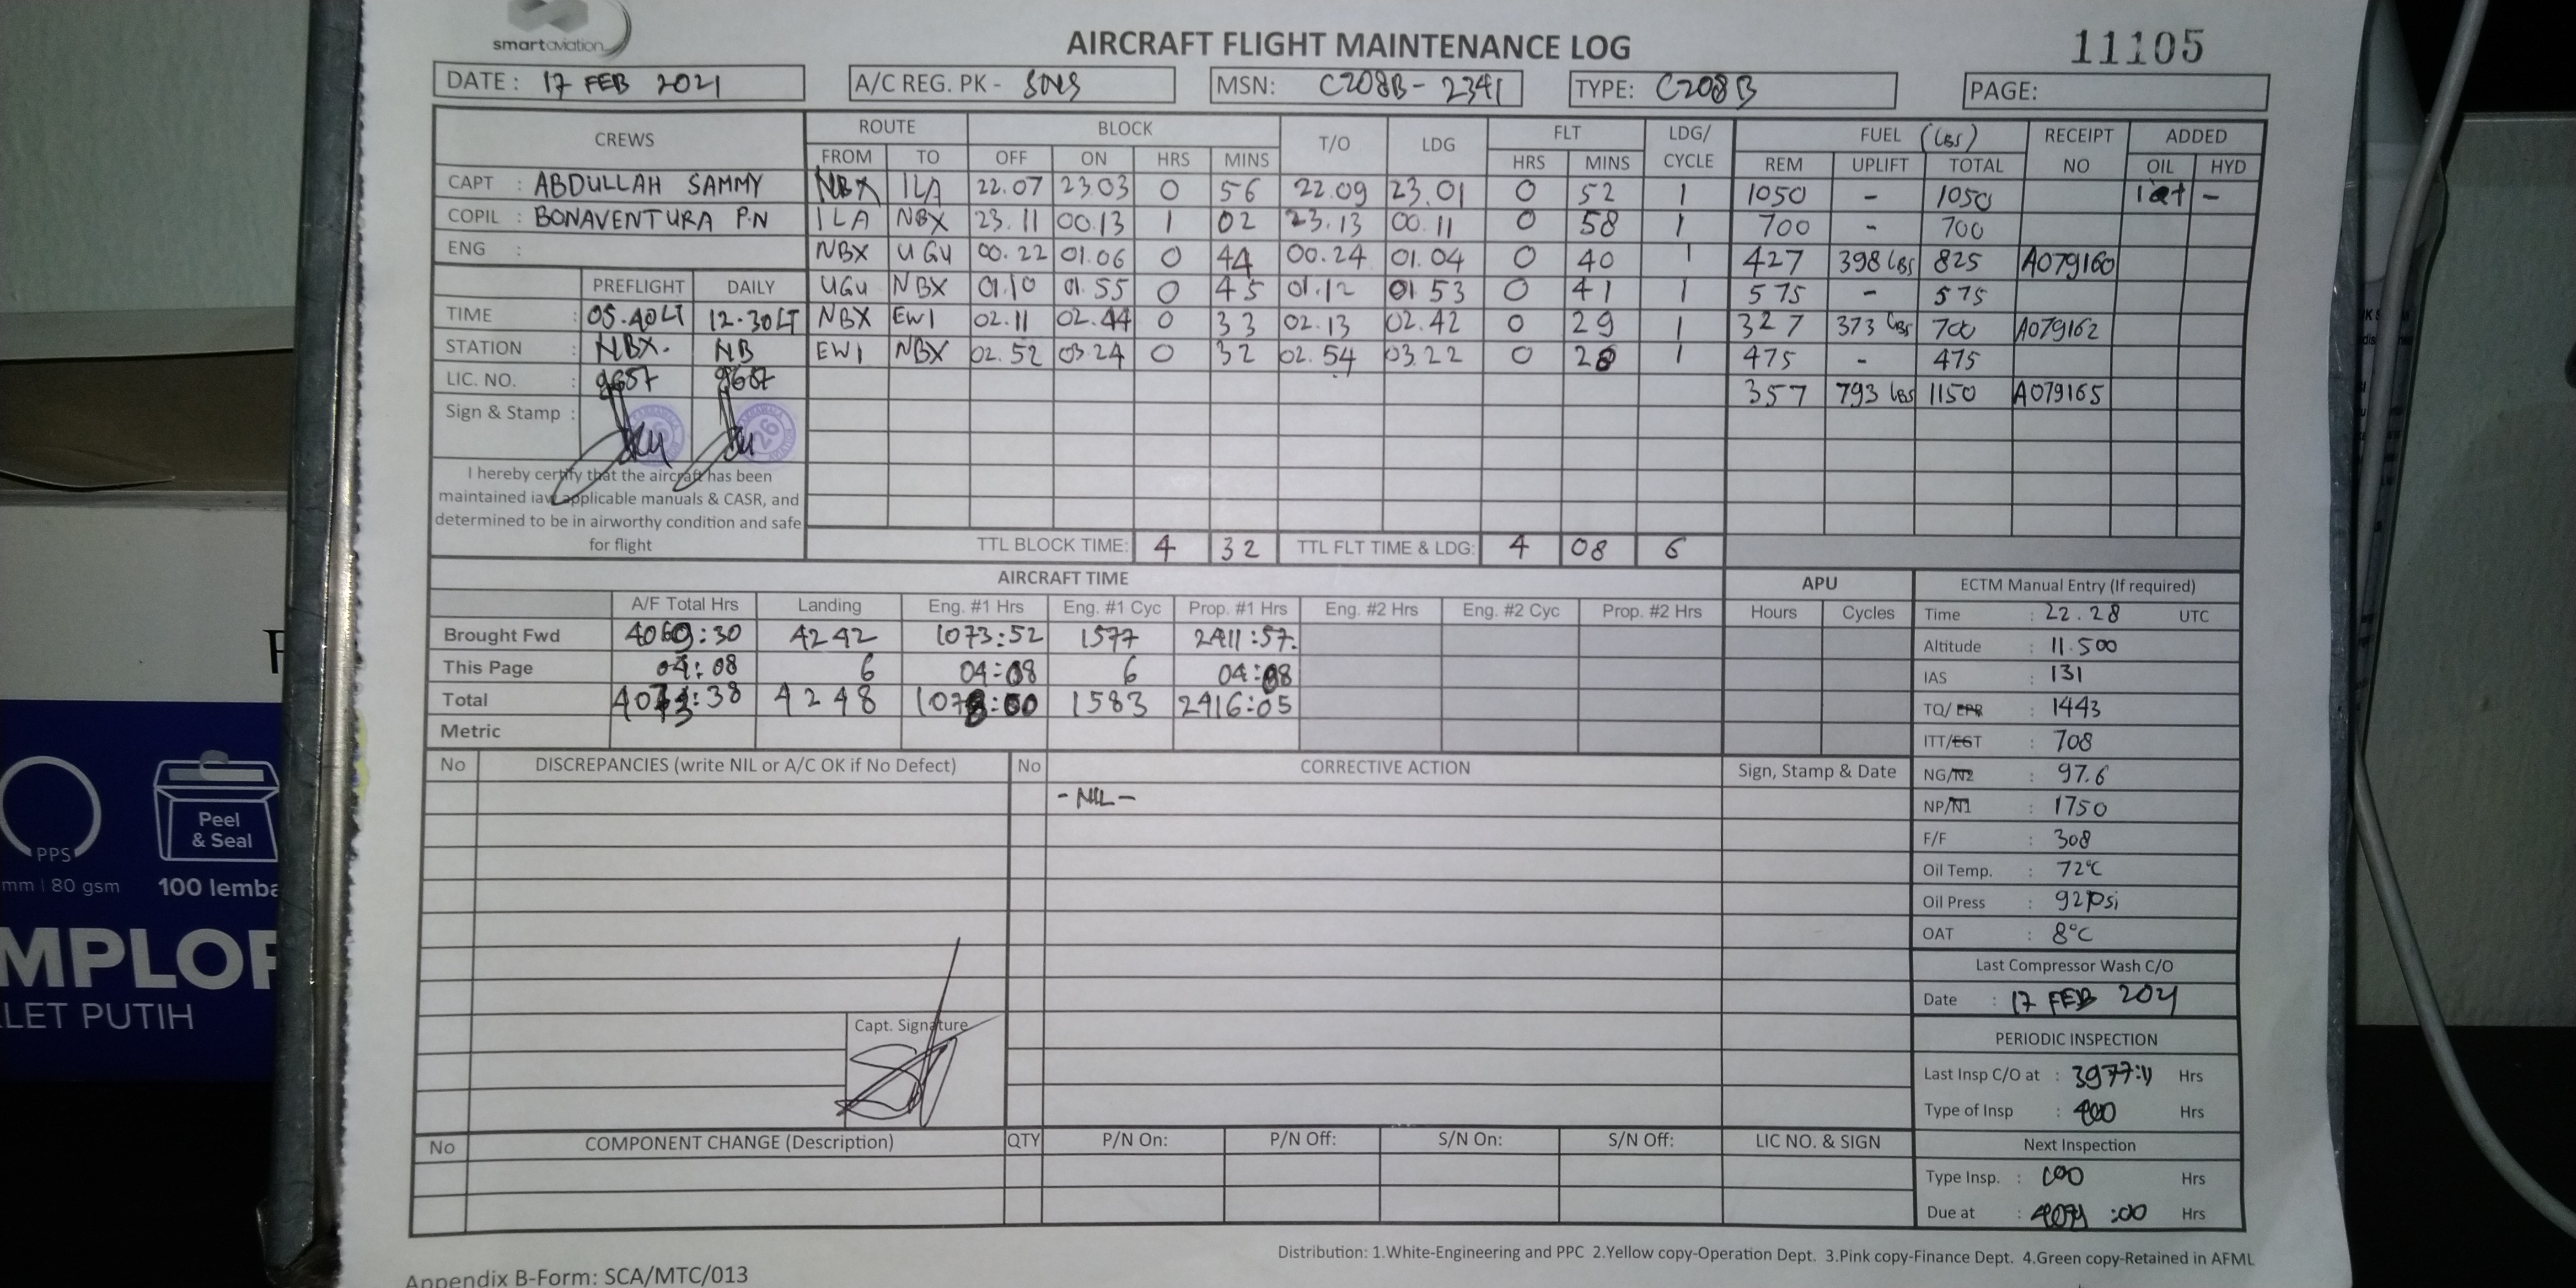 smartaviation
AIRCRAFT FLIGHT MAINTENANCE LOG
11105
DATE : 17 FEB 2021 A/C REG. PK - SNS MSN: C208B-2341 TYPE: C208B PAGE:
CREWS ROUTE BLOCK T/O LDG FLT LDG/CYCLE FUEL (LBS) RECEIPT NO ADDED
FROM TO OFF ON HRS MINS HRS MINS REM UPLIFT TOTAL OIL HYD
CAPT : ABDULLAH SAMMY NBX ILA 22.07 23 03 0 56 22.09 23.01 0 52 1 1050 - 1050 1qt -
COPIL : BONAVENTURA P.N ILA NBX 23.11 00.13 1 02 23.13 00.11 0 58 1 700 - 700
ENG : NBX UGU 00.22 01.06 0 44 00.24 01.04 0 40 1 427 398 LBS 825 A079160
PREFLIGHT DAILY UGU NBX 01.10 01.55 0 45 01.12 01 53 0 41 1 575 - 575
TIME : 05.40LT 12.30LT NBX EWI 02.11 02.44 0 33 02.13 02.42 0 29 1 327 373 LBS 700 A079162
STATION : NBX. NB EWI NBX 02.52 03.24 0 32 02.54 03.22 0 28 1 475 - 475
LIC. NO. : 357 793 LBS 1150 A079165
Sign & Stamp :
I hereby certify that the aircraft has been
maintained iaw applicable manuals & CASR, and
determined to be in airworthy condition and safe
for flight
TTL BLOCK TIME: 4 32 TTL FLT TIME & LDG: 4 08 6
AIRCRAFT TIME APU ECTM Manual Entry (If required)
A/F Total Hrs Landing Eng. #1 Hrs Eng. #1 Cyc Prop. #1 Hrs Eng. #2 Hrs Eng. #2 Cyc Prop. #2 Hrs Hours Cycles Time : 22.28 UTC
Brought Fwd 4069:30 4242 1073:52 1577 2411:57. Altitude : 11.500
This Page 04:08 6 04:08 6 04:08 IAS : 131
Total 4073:38 4248 1078:00 1583 2416:05 TQ/EPR : 1443
Metric ITT/EGT : 708
No DISCREPANCIES (write NIL or A/C OK if No Defect) No CORRECTIVE ACTION Sign, Stamp & Date NG/N2 : 97.6
- NIL - NP/N1 : 1750
F/F : 308
Oil Temp. : 72°C
Oil Press : 92psi
OAT : 8°C
Last Compressor Wash C/O
Date : 17 FEB 2021
Capt. Signature
PERIODIC INSPECTION
Last Insp C/O at : 3977:11 Hrs
Type of Insp : Hrs
No COMPONENT CHANGE (Description) QTY P/N On: P/N Off: S/N On: S/N Off: LIC NO. & SIGN Next Inspection
Type Insp. : Hrs
Due at : :00 Hrs
Distribution: 1.White-Engineering and PPC 2.Yellow copy-Operation Dept. 3.Pink copy-Finance Dept. 4.Green copy-Retained in AFML
Appendix B-Form: SCA/MTC/013
PPS
Peel
& Seal
mm | 80 gsm
100 lemba
MPLOP
LET PUTIH